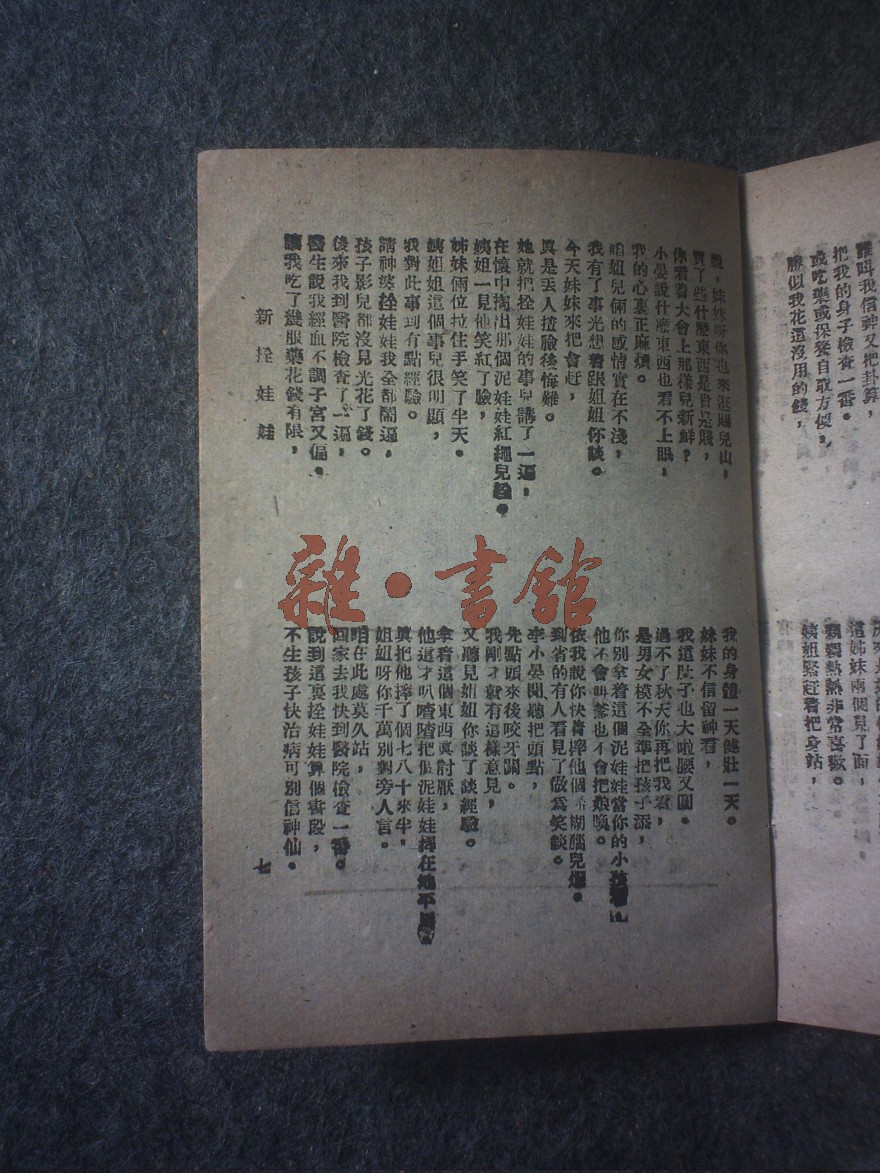 誰叫我信神又把卦算，
把我的身子檢查一番。
或吃藥或保養自取方便，
勝似我花這沒用的錢，
這姊妹兩個見了面，
親親熱熱非常喜歡。
姨姐緊趕着把身站，
說，妹妹呀你也來逛賜兒山，
買了些什麼東西是貴是賤，
你看着大會上那樣兒新鮮？
小晏說什麼東西也看不上眼，
我的心裏正麻煩。
咱姐兒倆的感情實在不淺，
我有了事光想着跟姐姐你談。
今天妹妹來把會赶，
眞是丢人揸臉後悔難。
她就把拴娃娃的事兒講了一遍，
在懷中掏出那個泥娃娃紅繩兒拴。
姨姐一見他笑紅了臉，
姊妹倆位拉住手笑了半天。
姨姐姐這個事兒很明顯，
我對此事到有點經驗。
請神婆拴娃娃我全都鬧遍，
孩子影兒都沒見光花了錢。
後來我到醫院檢查了一遍，
醫生說我經血不調子宮又偏。
讓我吃了幾服藥花錢有限，
我的身體一天健壯一天。
妹妹不信留神看，
我這肚子也大啦腰又圓。
過不了秋天你再把我看，
是男女模不全準把孩子添，
你別拿着這個泥娃娃當你的小
他不會叫爹也不會把娘喚。
依我說你快肯摔他個希糊腦兒爛。
到省的有人看見了做爲笑談。
李小晏聞聽把頭點，
先點頭來後咬牙關。
我剛才就有這樣意見，
又聽見姐姐你談了談經驗。
拿着這個東西眞討厭，
他這才叭喳喳把個泥娃娃摔在地平
眞把他摔了個七八十來半，
姐姐呀你千萬別對旁人言。
咱在此處莫久站，
回家去我快到醫院檢查一番。
說到這裏拴娃娃算個書段，
不生孩子快治病可別信神仙。
新拴娃娃
七
雜·書館